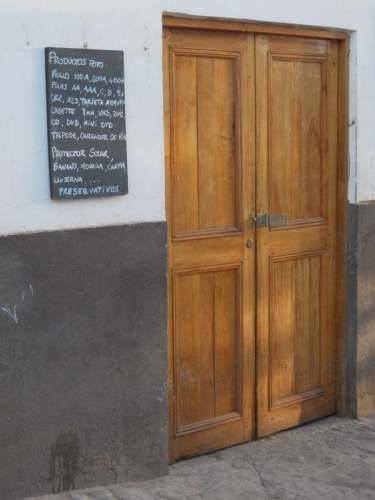 PRODUCTOS FOTO
ROLLO 100A, 200A, 400A
PILAS AA, AAA, C, D, 9V
CR2, 123, TARJETA MEMORIA
CASETTE 8MM, VHS, DVC
CD, DVD, MINI DVD
TRIPODE, CARGADOR DE PILA
PROTECTOR SOLAR,
BANANO, MOCHILA, CARPA,
LINTERNA, ...
PRESERVATIVOS